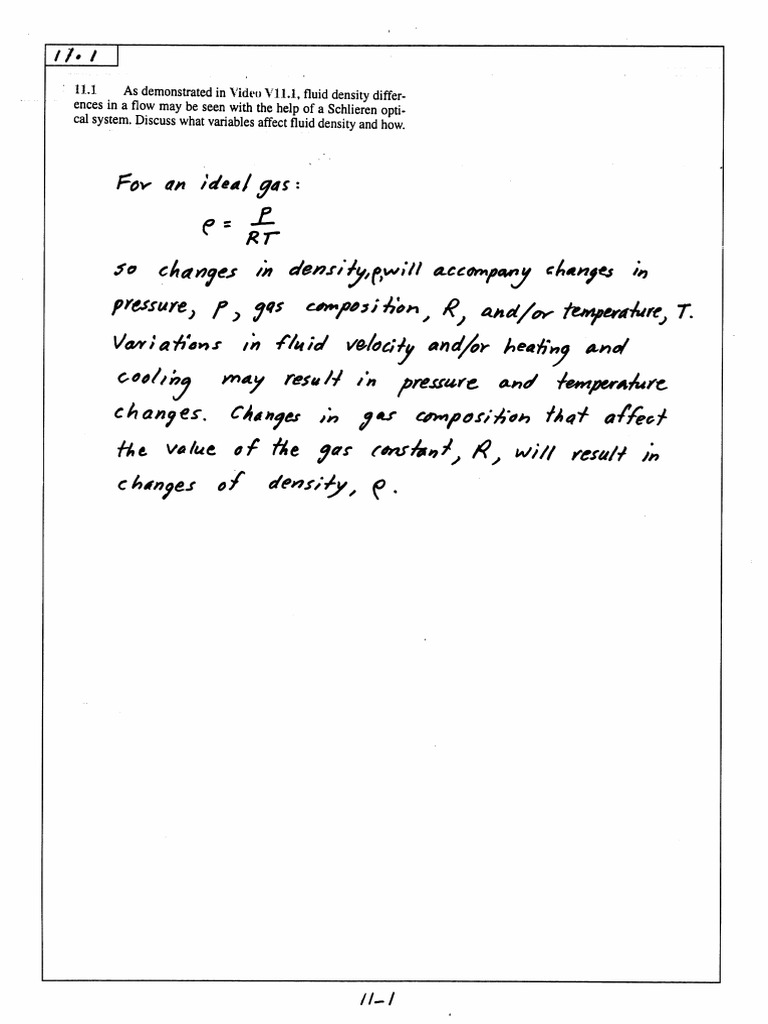 11.1
11.1 As demonstrated in Video V11.1, fluid density differ-
ences in a flow may be seen with the help of a Schlieren opti-
cal system. Discuss what variables affect fluid density and how.
For an ideal gas:
ρ = P/RT
so changes in density, ρ, will accompany changes in
pressure, p, gas composition, R, and/or temperature, T.
Variations in fluid velocity and/or heating and
cooling may result in pressure and temperature
changes. Changes in gas composition that affect
the value of the gas constant, R, will result in
changes of density, ρ.
11-1